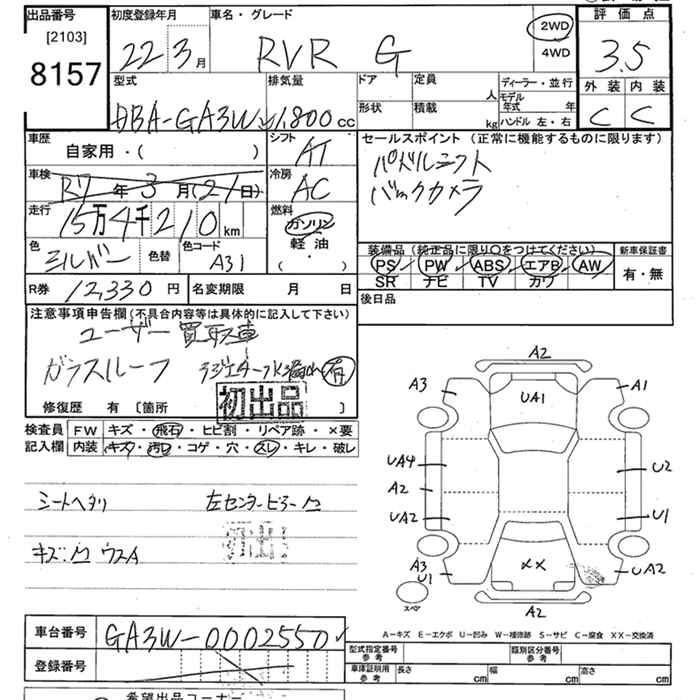 出品番号
[2103]
8157
初度登録年月
22 3月
車名・グレード
RVR G
2WD
4WD
評価点
3.5
外装 内装
C C
型式
DBA-GA3W
排気量
1,800cc
ドア
形状
定員
人
積載
kg
ディーラー・並行
モデル年式 年
ハンドル 左・右
車歴
自家用・( )
シフト
AT
車検
R7年3月(21日)
冷房
AC
走行
15万4千210km
燃料
ガソリン
軽油
( ・ )
色
シルバー
色替
色コード
A31
R券 12,330円
名変期限 月 日
セールスポイント(正常に機能するものに限ります)
パドルシフト
バックカメラ
装備品(純正品に限り○をつけてください)
PS PW ABS エアB AW
SR ナビ TV カワ
新車保証書
有・無
後日品
注意事項申告欄(不具合内容等は具体的に記入して下さい)
ユーザー買取車
ガラスルーフ ラジエター水漏れ有
初出品
修復歴 有 [箇所 ]
検査員記入欄
FW キズ・飛石・ヒビ割・リペア跡・×要
内装 キズ・汚レ・コゲ・穴・スレ・キレ・破レ
シートヘタリ 左センターピラー凹
キズ:凹 ウスA
初出
A2
A3
UA1
A1
UA4
A2
UA2
U2
U1
A3
U1
XX
UA2
A2
スペア
A-キズ E-エクボ U-凹み W-補修跡 S-サビ C-腐食 XX-交換済
車台番号
GA3W-0002550
登録番号
型式指定番号
参考
類別区分番号
参考
車庫証明用
参考
長さ cm
幅 cm
高さ cm
希望出品コーナー